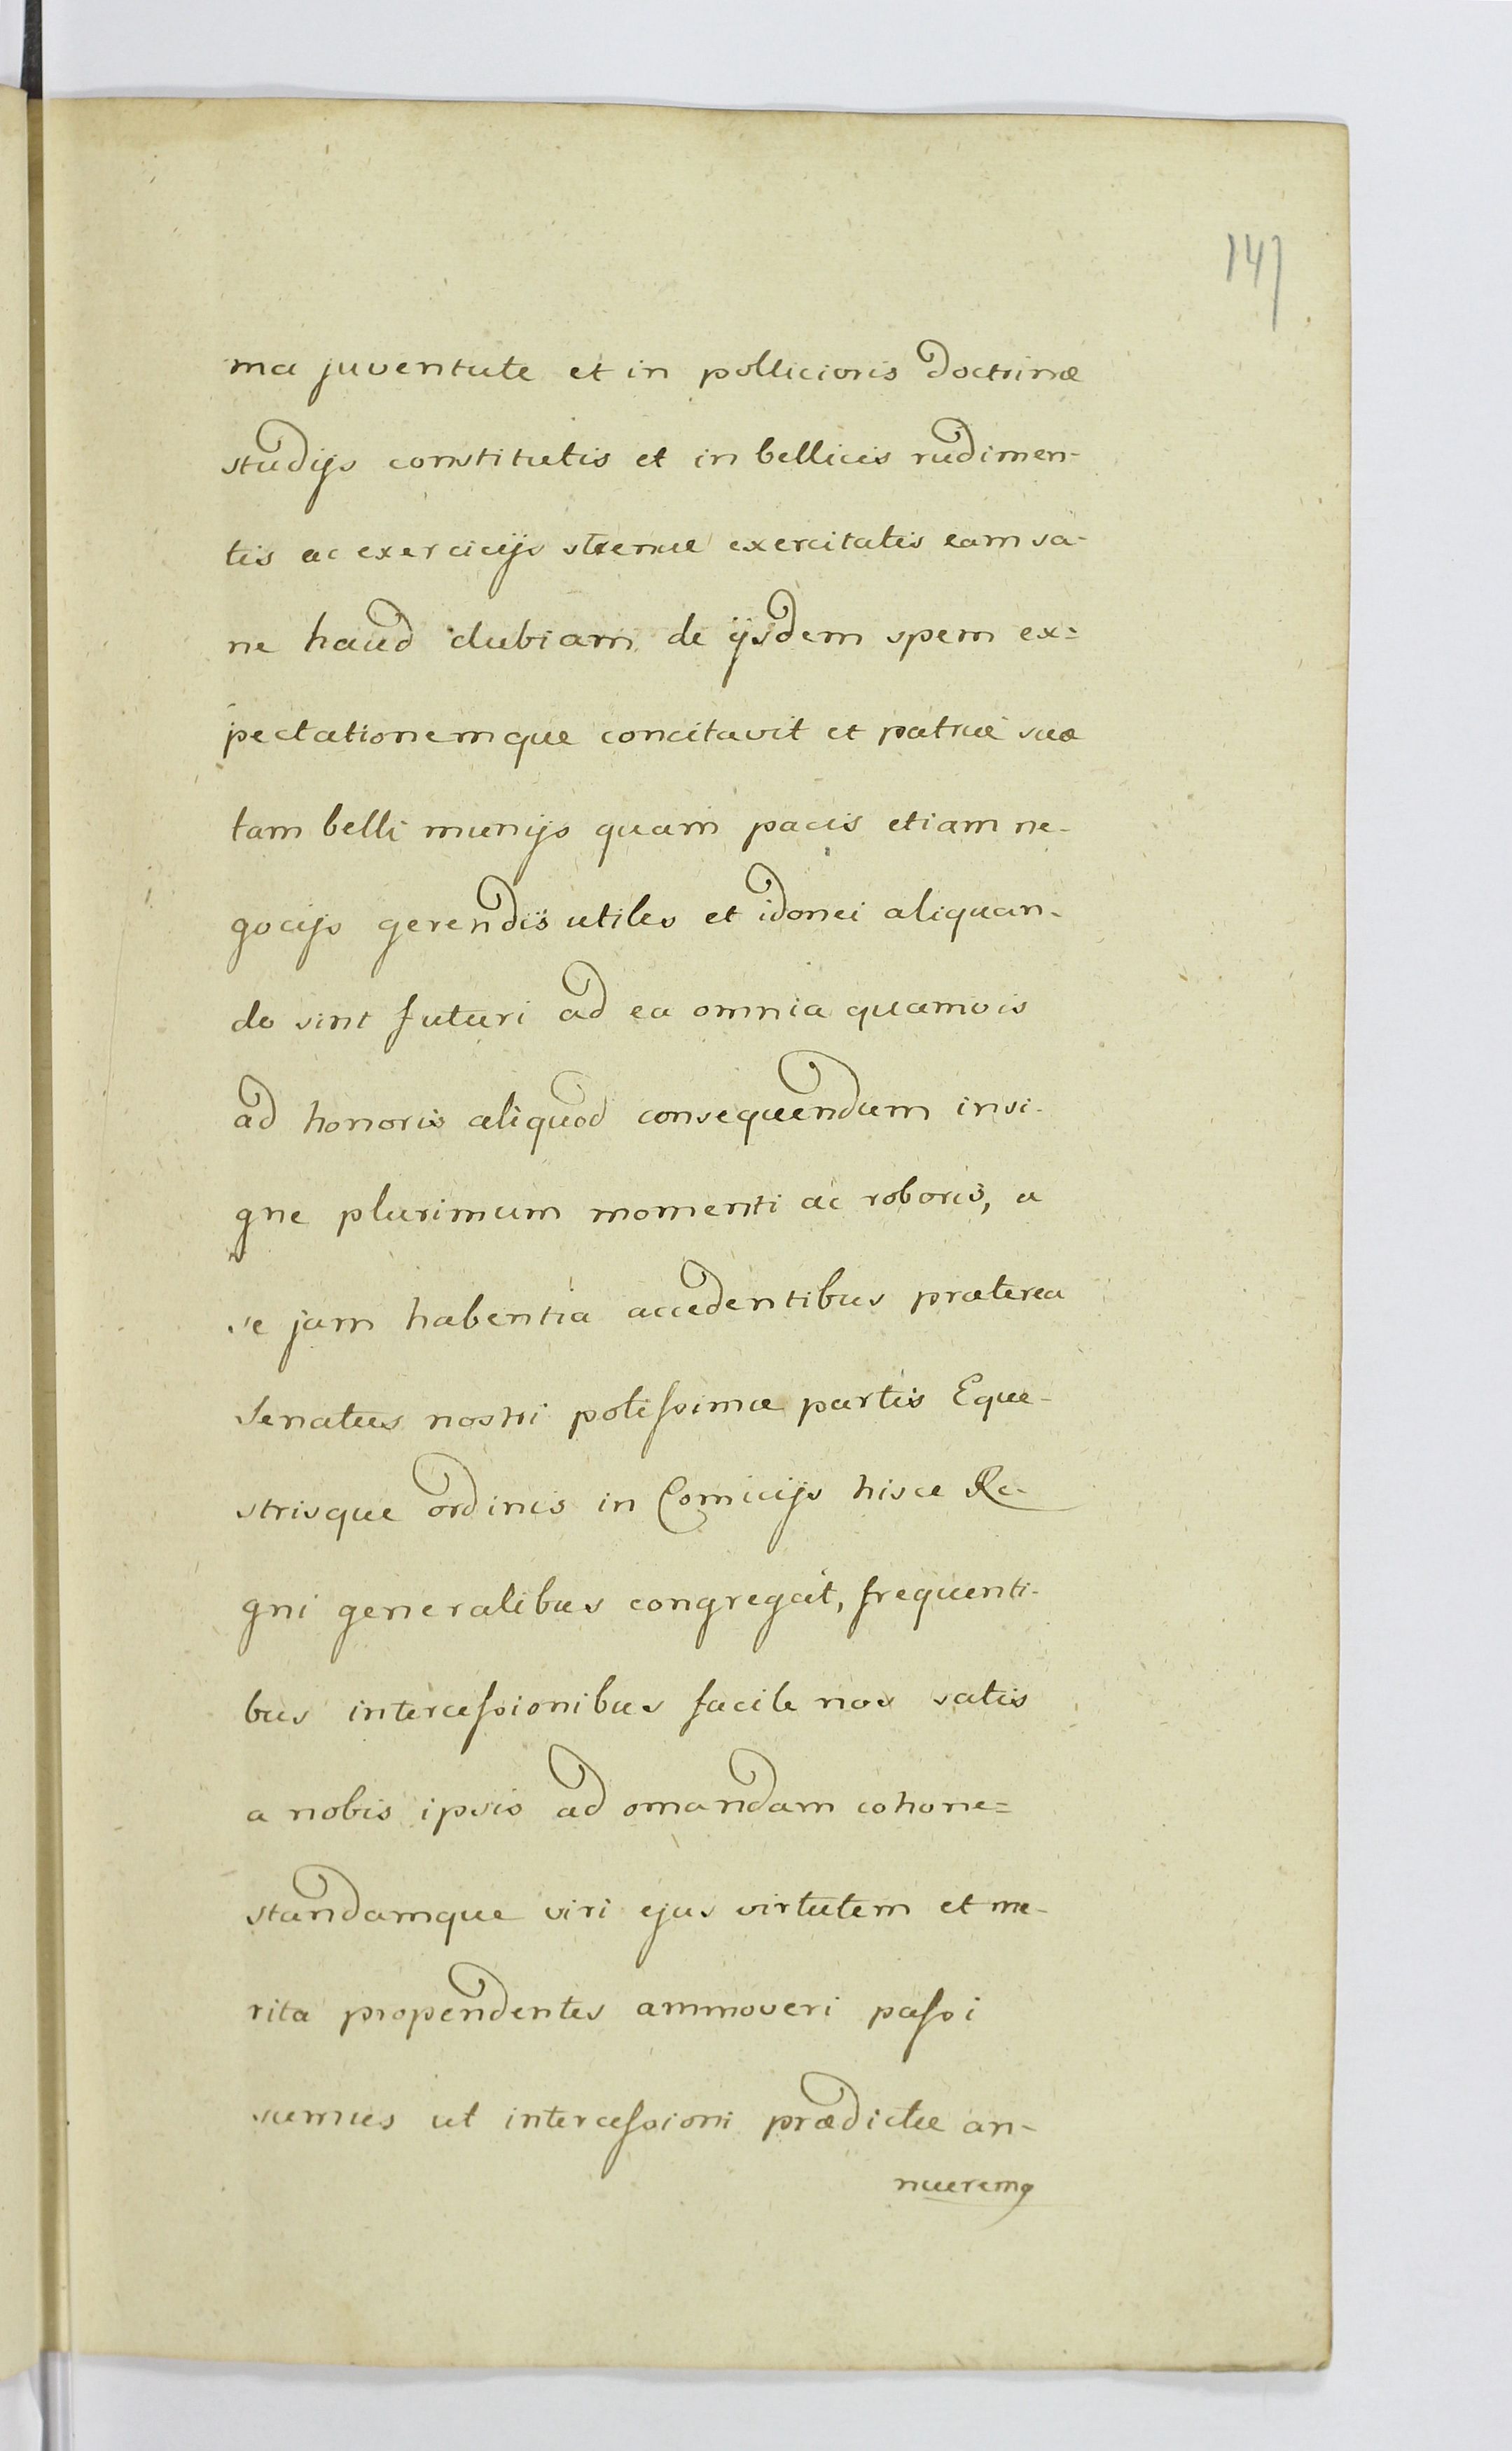 147
ma juventute et in pollicioris doctrinæ
studijs constitutis et in bellicis rudimen-
tis ac exercicijs strenue exercitatis eam sa-
ne haud dubiam de ijsdem spem ex=
pectationemque concitavit et patriæ suæ
tam belli munijs quam pacis etiam ne-
gocijs gerendis utiles et idonei aliquan-
do sint futuri ad ea omnia quamvis
ad honoris aliquod consequendum insi-
gne plurimum momenti ac roboris, a
se jam habentia accedentibus præterea
Senatus nostri potissimæ partis Eque-
strisque ordinis in Comicijs hisce Re-
gni generalibus congregat, frequenti-
bus intercessionibus facile nos satis
a nobis ipsis ad ornandam cohone=
standamque viri ejus virtutem et me-
rita propendentes ammoveri passi
sumus ut intercessioni prædictæ an-
nueremq